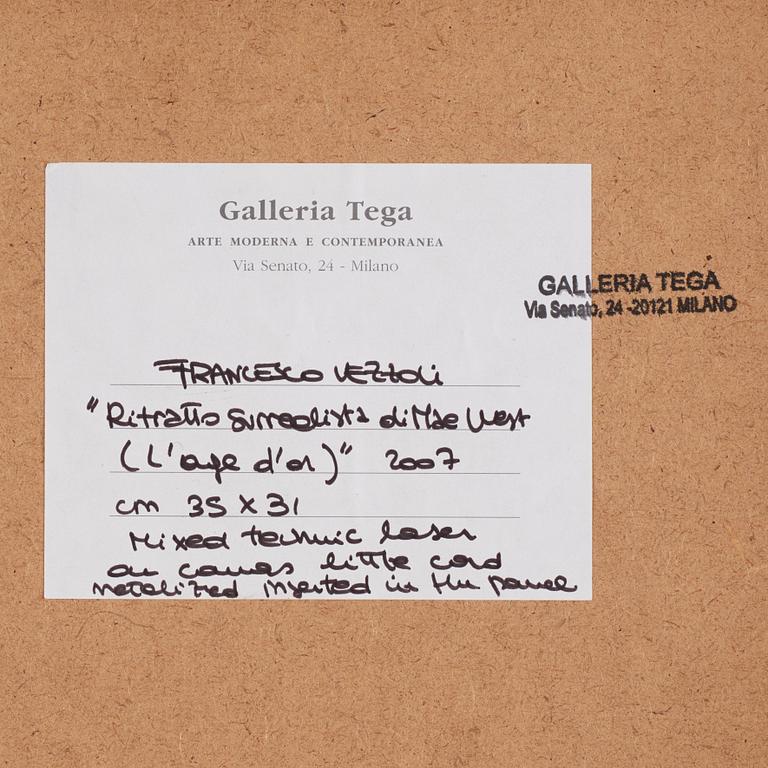 Galleria Tega
ARTE MODERNA E CONTEMPORANEA
Via Senato, 24 - Milano
GALLERIA TEGA
Via Senato, 24 -20121 MILANO
FRANCESCO VEZZOLI
"Ritratto Surrealista di Mae West
(L'age d'or)" 2007
cm 35 X 31
Mixed technic laser
on canvas little cord
metalized inserted in the panel